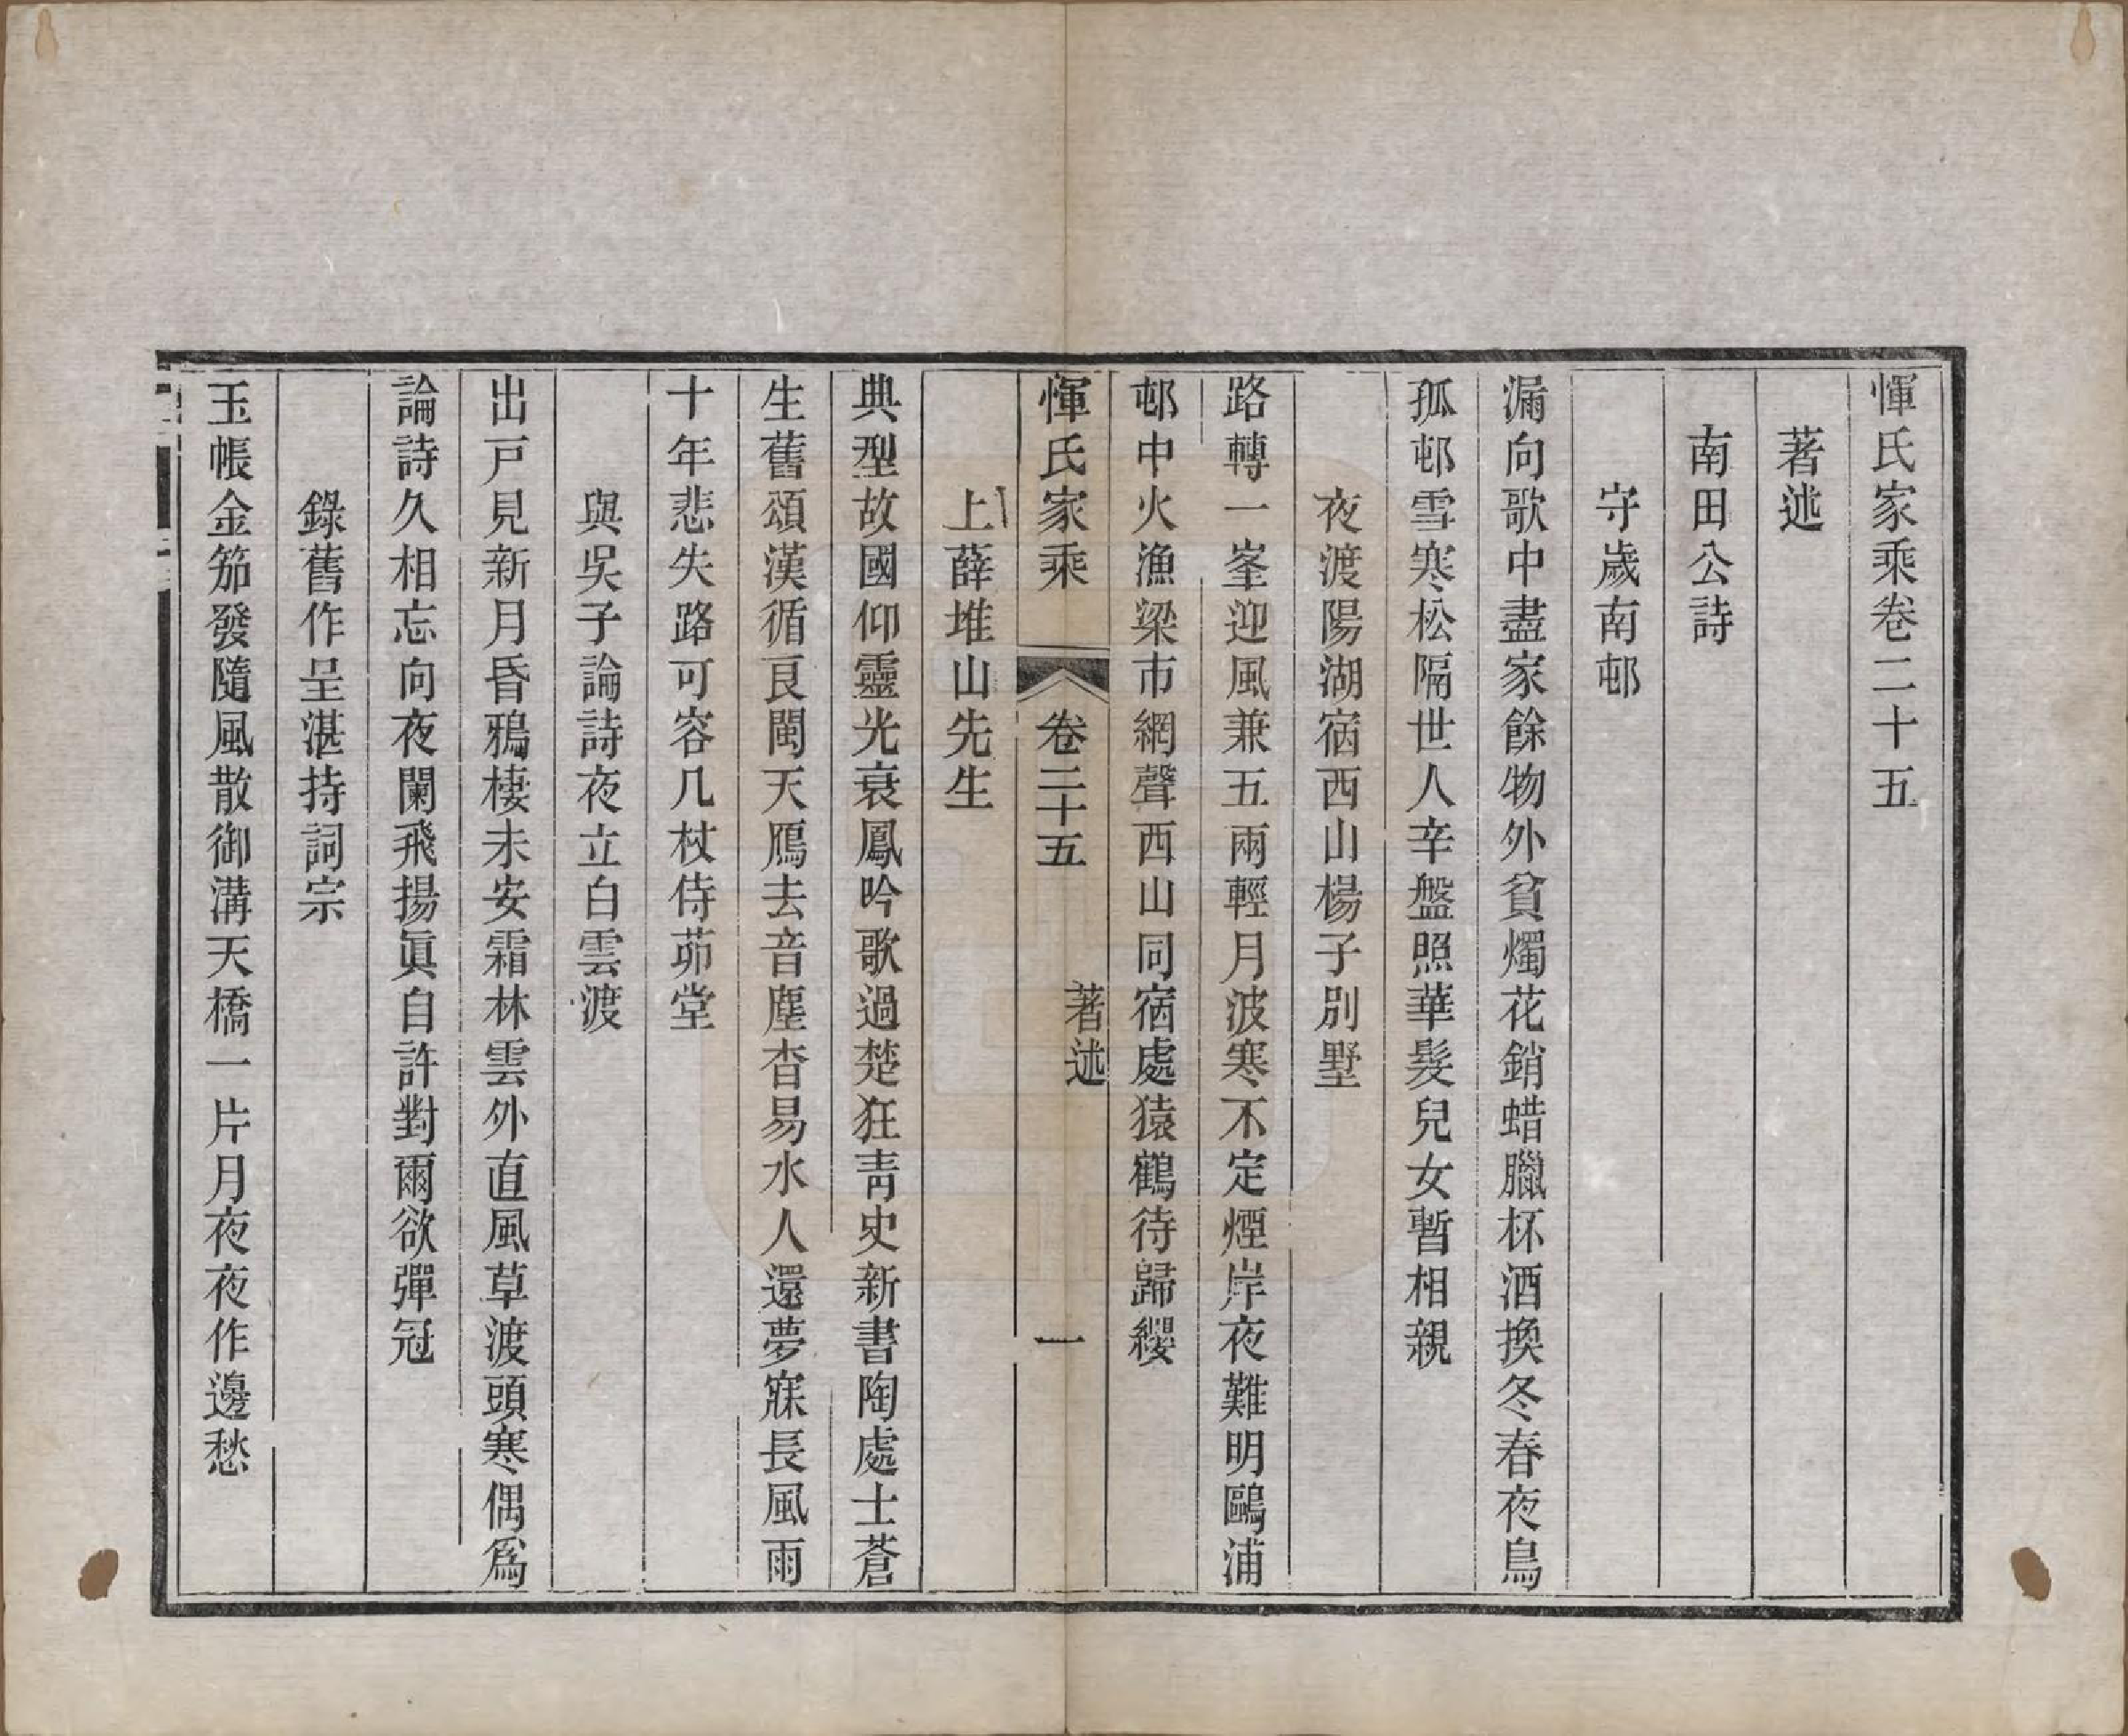 惲氏家乘卷二十五
著述
南田公詩
守歲南邨
漏向歌中盡家餘物外貧燭花銷蜡臘杯酒換冬春夜鳥
孤邨雪寒松隔世人辛盤照華髮兒女暫相親
夜渡陽湖宿西山楊子別墅
路轉一峯迎風兼五兩輕月波寒不定煙岸夜難明鷗浦
邨中火漁梁市網聲西山同宿處猿鶴待歸纓
惲氏家乘 卷二十五 著述 一
上薛堆山先生
典型故國仰靈光衰鳳吟歌過楚狂靑史新書陶處士蒼
生舊頌漢循良閩天鴈去音塵杳易水人還夢寐長風雨
十年悲失路可容几杖侍茆堂
與吳子論詩夜立白雲渡
出戸見新月昏鴉棲未安霜林雲外直風草渡頭寒偶爲
論詩久相忘向夜闌飛揚眞自許對爾欲彈冠
錄舊作呈湛持詞宗
玉帳金笳發隨風散御溝天橋一片月夜夜作邊愁